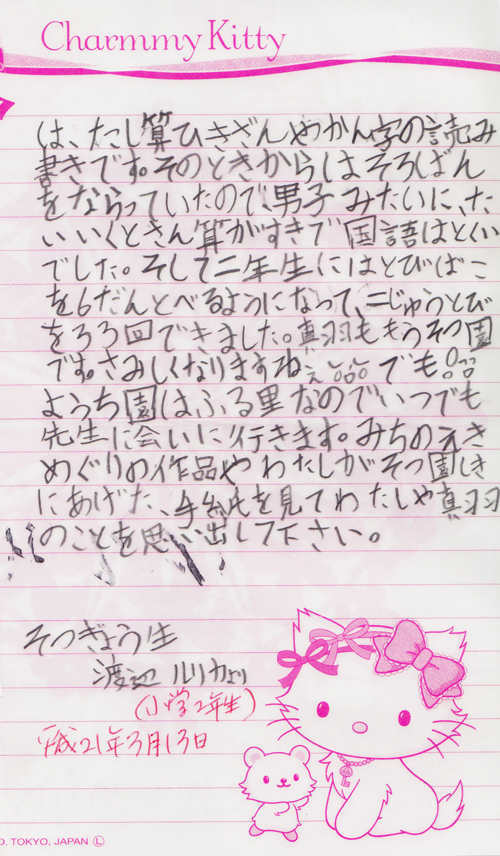 Charmmy Kitty
は、たし算ひきざんやかん字の読み
書きです。そのときからはそろばん
をならっていたので、男子みたいに、た
いいくとさん算がすきで国語はとくい
でした。そして二年生にはとびばこ
を6だんとべるようになって、二じゅうとび
を33回できました。真羽ももうそつ園
です。さみしくなりますね。でも
ようち園はふる里なのでいつでも
先生に会いに行きます。みちのえき
めぐりの作品やわたしがそつ園しき
にあげた、手紙を見てわたしや真羽
のことを思い出して下さい。
そつぎょう生
渡辺ルリカより
(小学2年生)
平成21年3月13日
O. TOKYO, JAPAN Ⓛ